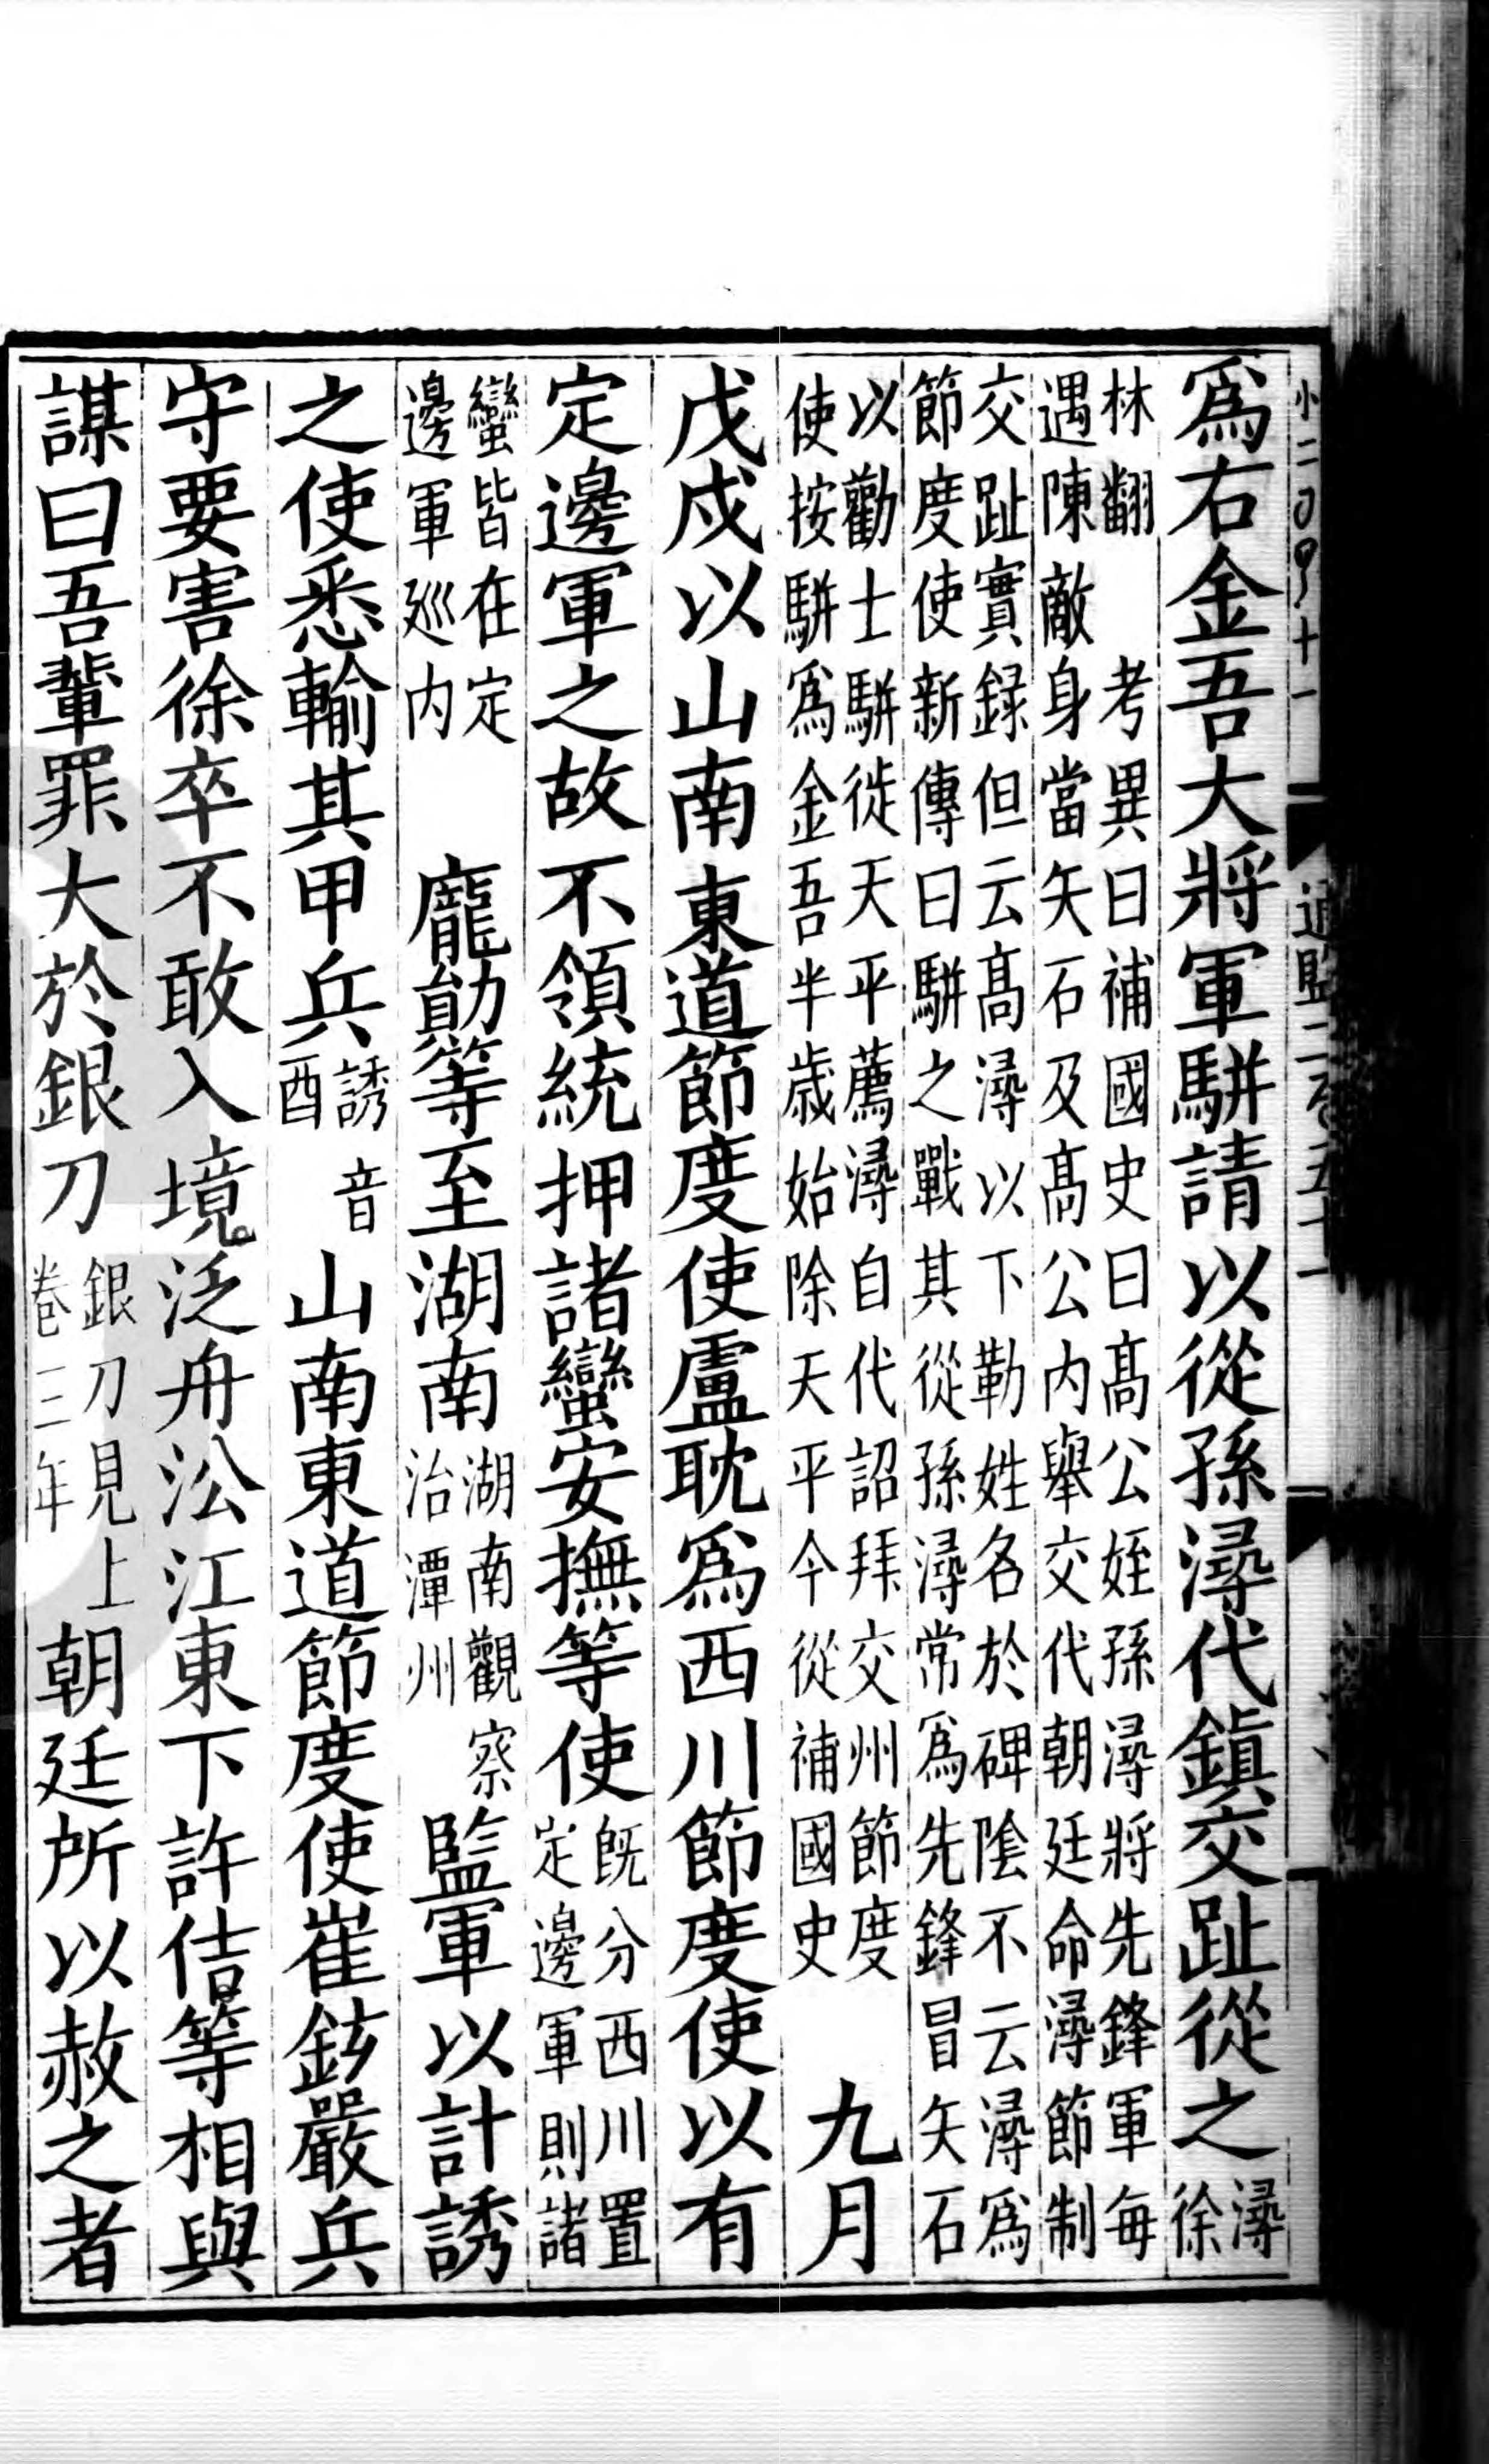 爲右金吾大將軍駢請以從孫潯代鎮交趾從之潯徐
林翻 考異曰補國史曰髙公姪孫潯將先鋒軍每
遇陳敵身當矢石及髙公内舉交代朝廷命潯節制
交趾實録但云髙潯以下勒姓名於碑陰不云潯爲
節度使新傳曰駢之戰其從孫潯常爲先鋒冒矢石
以勸士駢徙天平薦潯自代詔拜交州節度
使按駢爲金吾半歳始除天平今從補國史
九月
戊戌以山南東道節度使盧耽爲西川節度使以有
定邊軍之故不領統押諸蠻安撫等使既分西川置定邊軍則諸
蠻皆在定邊軍廵内 龐勛等至湖南湖南觀察治潭州監軍以計誘
之使悉輸其甲兵誘音酉 山南東道節度使崔鉉嚴兵
守要害徐卒不敢入境泛舟㳂江東下許佶等相與
謀曰吾輩罪大於銀刀銀刀見上卷三年朝廷所以赦之者